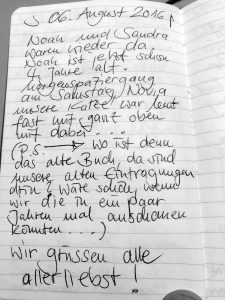 06. August 2016
Noah und Sandra
waren wieder da.
Noah ist jetzt schon
4 Jahre alt.
Morgenspaziergang
am Samstag,
unsere Katze war
fast mit ganz oben
mit dabei . . . .
(P.S. → wo ist denn
das alte Buch, da sind
unsere alten Eintragungen
drin? Wäre schön, wenn
wir die in ein paar
Jahren mal
könnten . . .)
Wir grüssen alle
allerliebst!